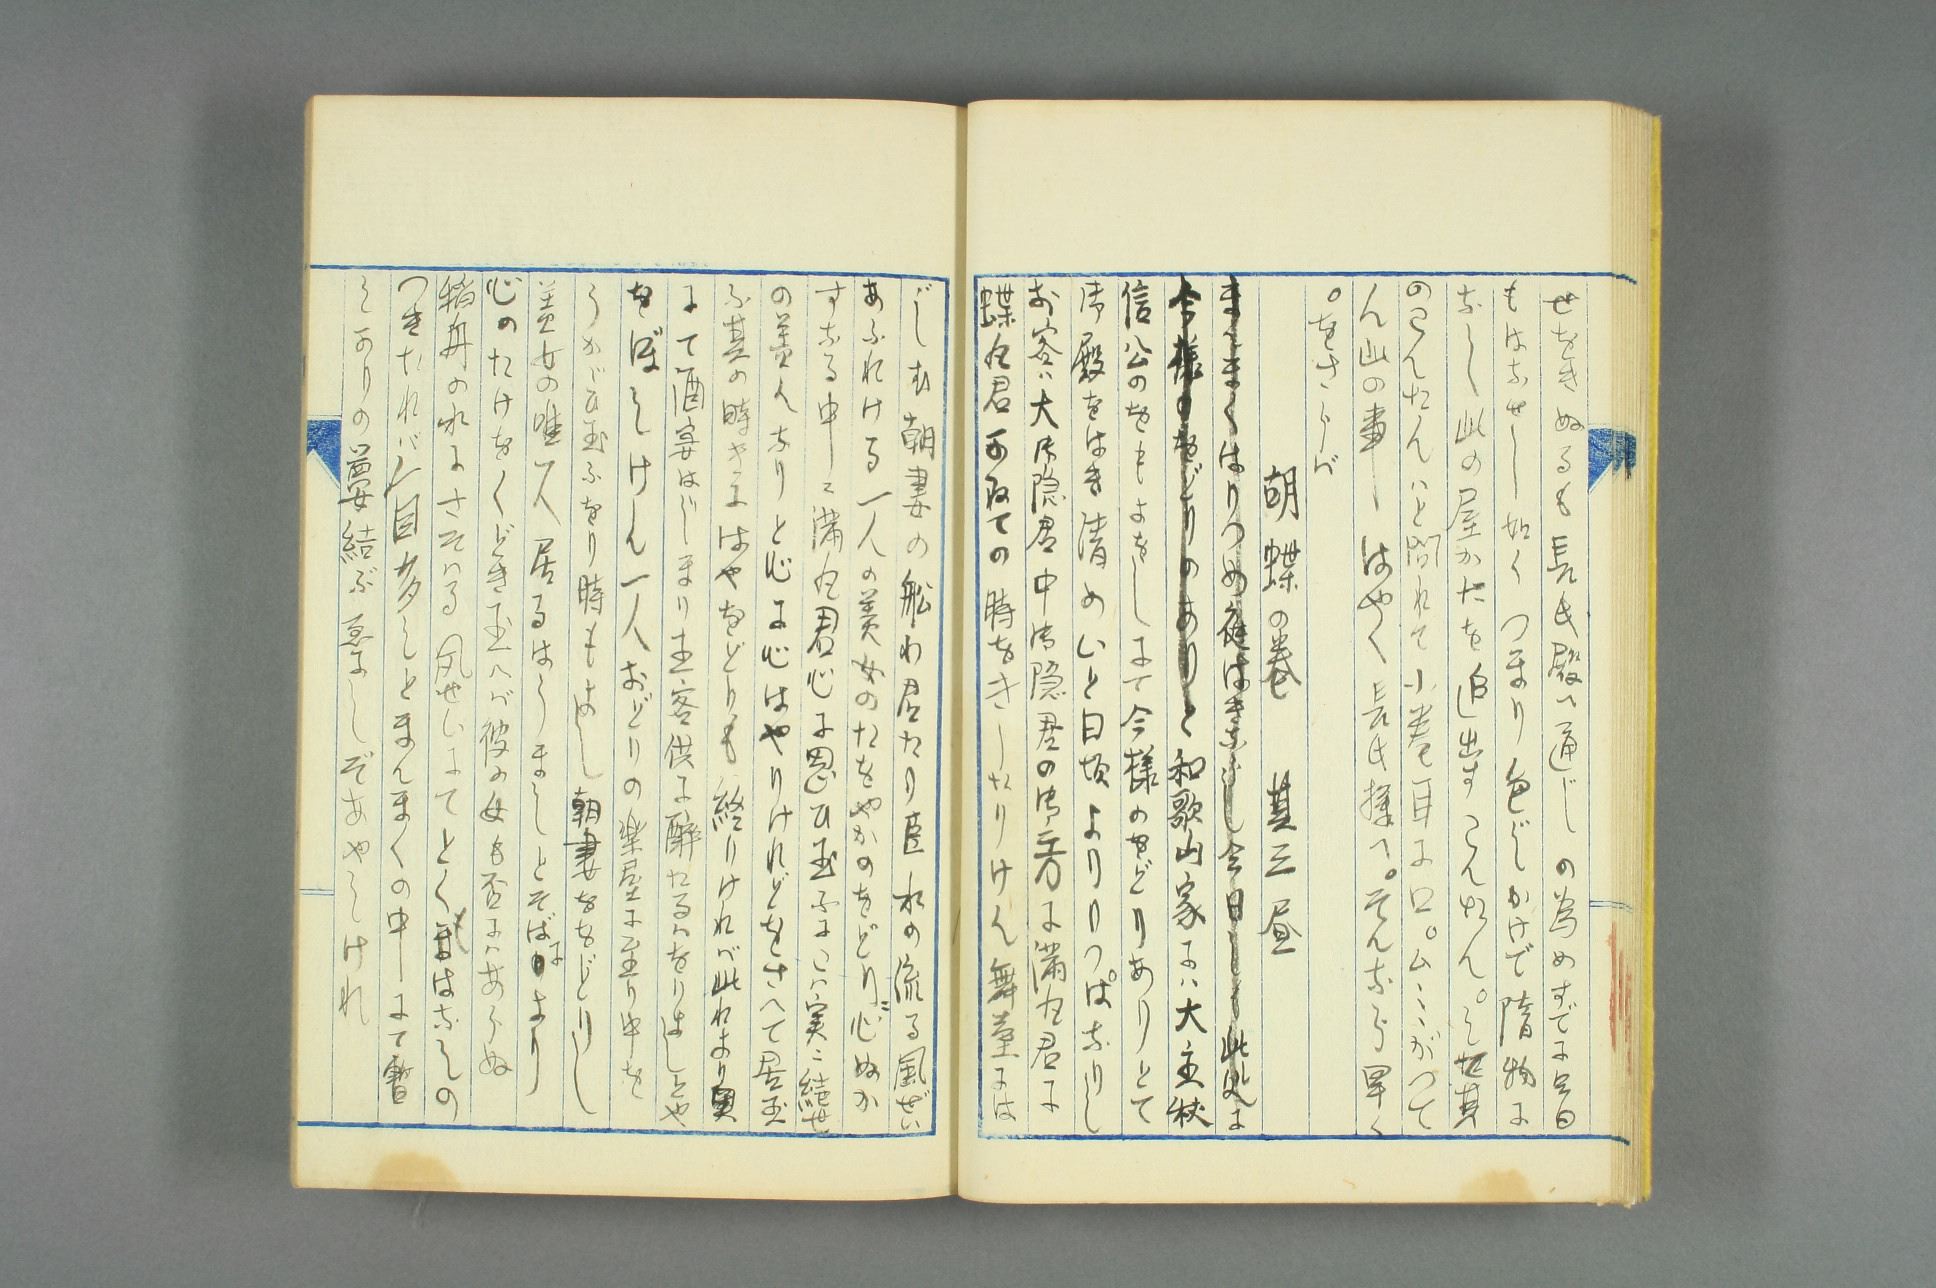 せをきぬるも長氏殿へ通じの為めずでに昔
もはなせし如くつまり色じかけで隋物に
なし此の屋かたを追出すこんたん。シテ其
のこんたんはと問れて小巻耳に口。ムヽヽがつて
ん此の事ーはやく長氏様へ。そんなら早く
。をさらバ
胡蝶の巻 其三 昼
まくまくはりつめ庭はきなじし今日しも此処に
今様のをどりのありと和歌山家には大主秋
信公のをもよをしにて今様のをどりありとて
御殿をはき清めいと日頃よりりつぱなりし
お客ハ大御隠君中御隠君の御二方に満丸君に
蝶丸君可ねての時をきしたりけん舞台には
ばしむ朝妻の船わ君たり臣水の流る風ぜい
あふれける一人の美女のたをやかのをどりニ心ぬか
すなる中ーニ満丸君心に思ひ玉ふにこハ実ニ絶せ
の美人なりと心に心はやりけれどをさへて居玉
ふ其の時やまはやをどりも終りけれバ此れより奥
にて酒宴はじまり主客供に酔たるハをりはしとや
をぼしけん一人おどりの楽屋に至り中を
うかゞひ玉ふをり時もよし朝妻ををどりし
美女の唯一人居るはうましとそばにより
心のたけをくどき玉へバ彼の女も否にハあらぬ
稍舟の水にさそハる風せいにてとくまはなしの
つきたれバ人目多しとまんまくの中ーにて暫
しそりの夢結ぶ恋にしぞあやしけれ